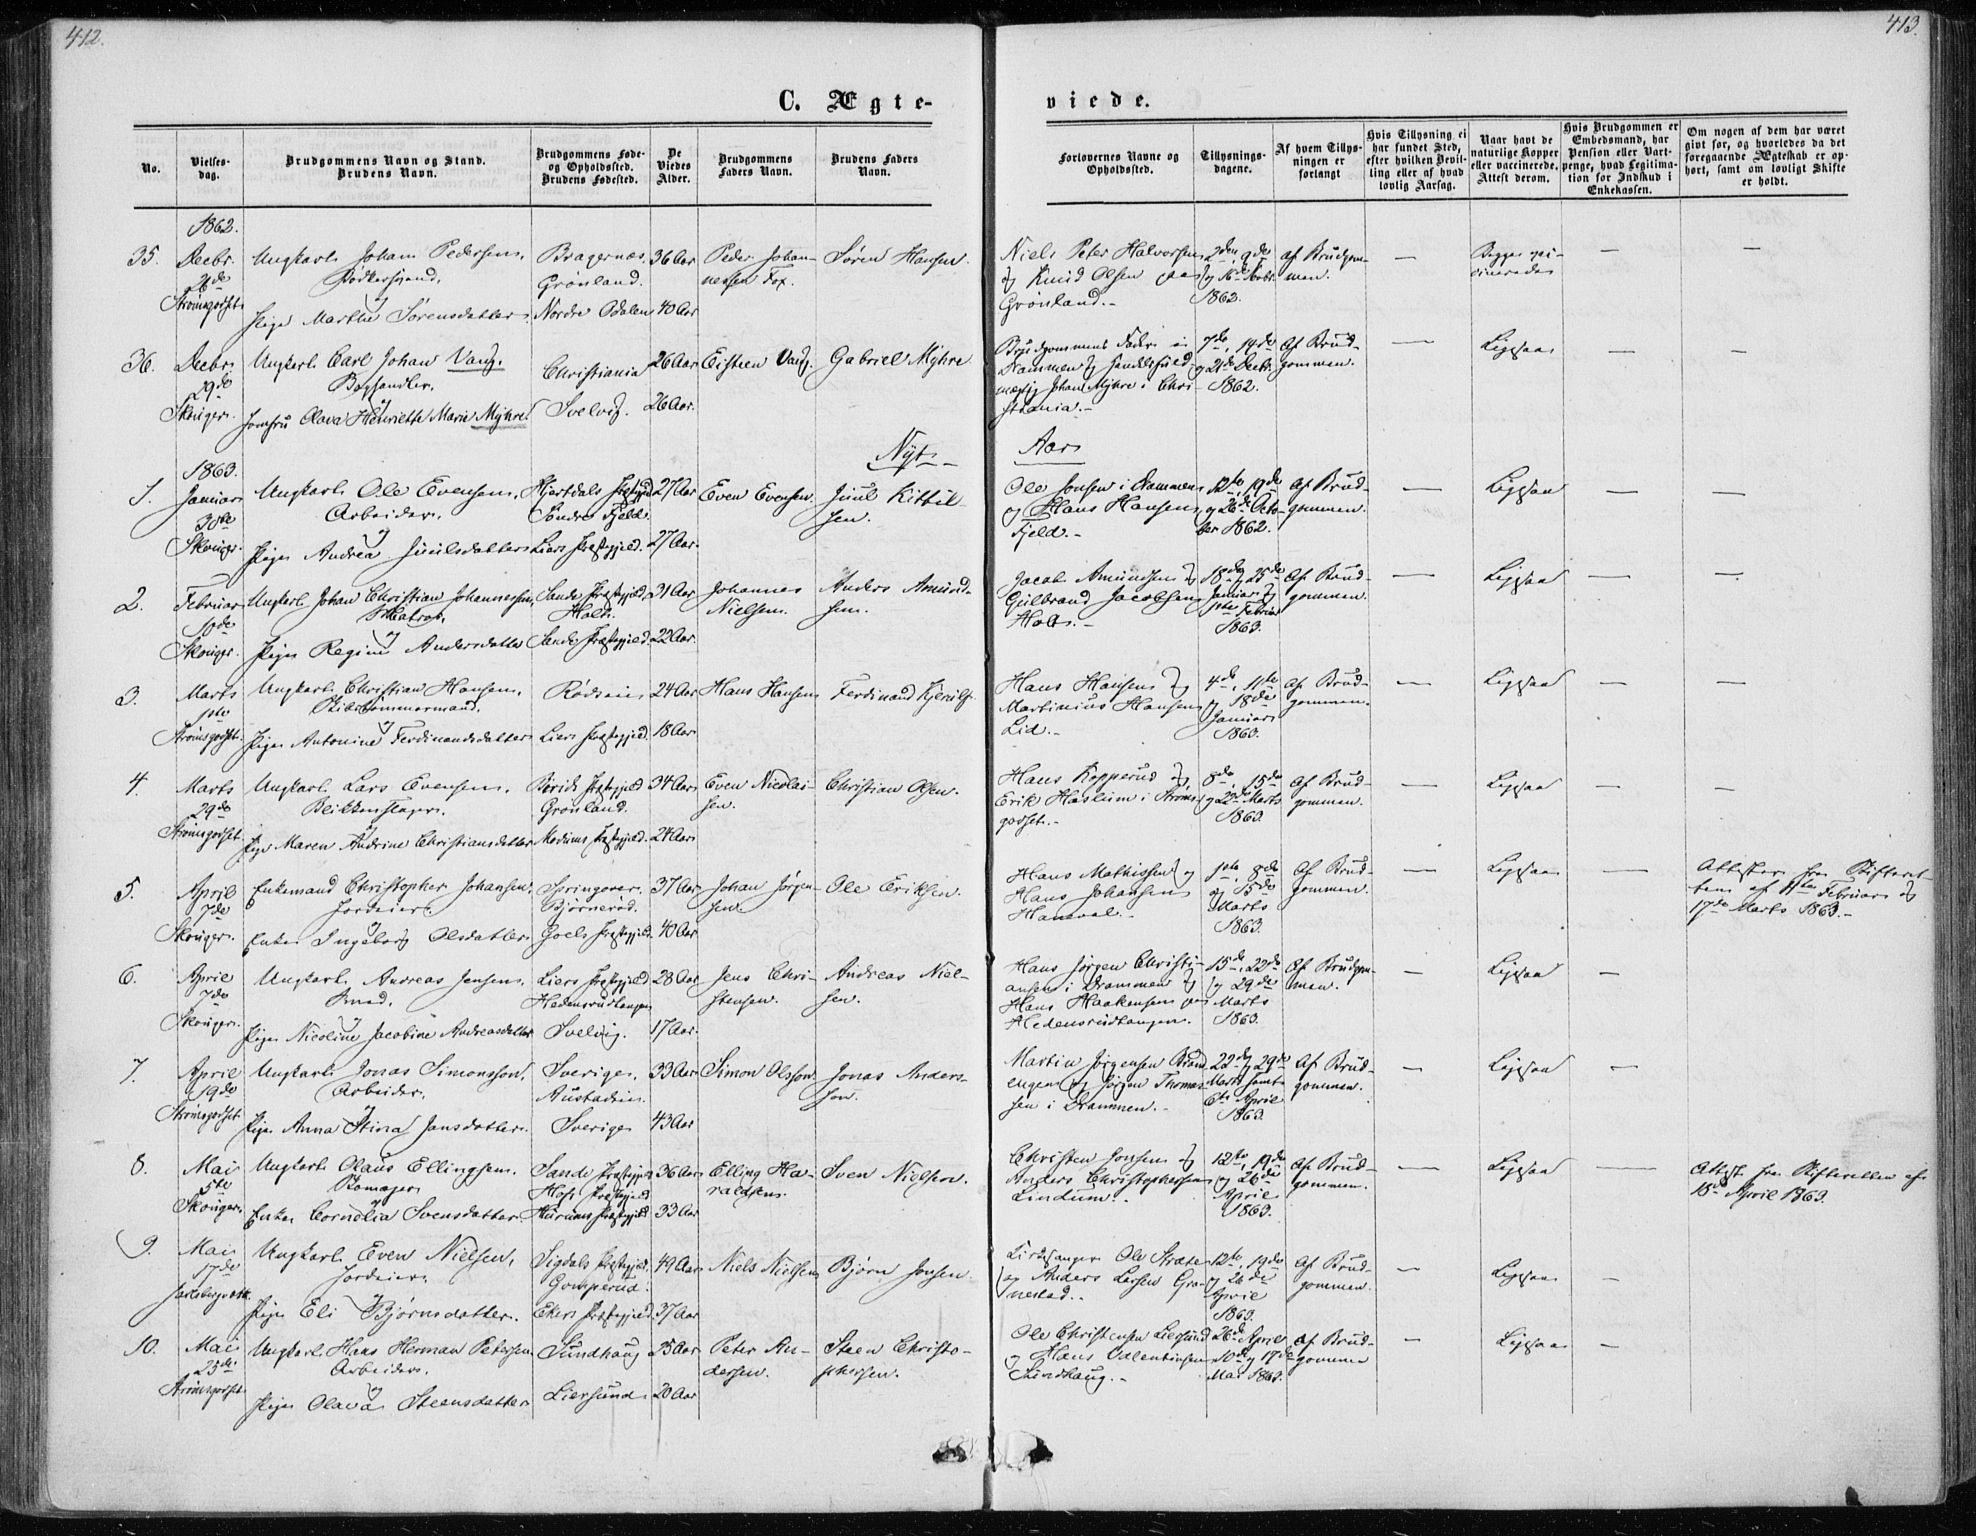 412.
413.
C. Ægte-
viede.
No.
Vielses-
dag.
Brudgommens Navn og Stand.
Brudens Navn.
Brudgommens Føde-
og Opholdssted.
Brudens Fødested.
De
Viedes
Alder.
Brudgommens
Faders Navn.
Brudens Faders
Navn.
Forlovernes Navne og
Opholdssted.
Tillysnings-
dagene.
Af hvem Tillys-
ningen er
forlangt
Hvis Tillysning ei
har fundet Sted,
efter hvilken Bevil-
ling eller af hvad
lovlig Aarsag.
Naar havt de
naturlige Kopper
eller vaccinerede.
Attest derom.
Hvis Brudgommen er
Embedsmand, har
Pension eller Vart-
penge, hvad Legitima-
tion for Indskud i
Enkekassen.
Om nogen af dem har været
gift før, og hvorledes da det
foregaaende Ægteskab er op-
hørt, samt om lovligt Skifte
er holdt.
1862.
35.
Decbr.
26de
Strømsgodset
Ungkarl Johan Pedersen,
og
Pige Marthe Sørensdatter
Bragernæs.
Grønland.
Nordre Odalen
36 Aar
40 Aar
Peder Johan-
nessen Fox.
Søren Hansen.
Niels Peter Halvorsen
og Knud Olsen paa
Grønland.-
2den, 9de
og 16de Novbr.
1862.
af Brudgom-
men.
—
Begge vac-
cinerede
—
—
36.
Decbr.
29de
Skouger.
Ungkarl Carl Johan Vang.
Boghandler,
og
Jomfru Olava Henriette Marie Myhre
Christiania
Svelvig.
26 Aar
26 Aar.
Eisteen Vang.
Gabriel Myhre
Brudgommens Fader i
Drammen og Handelsfuld-
mægtig Johan Myhre i Chri-
stiania.-
7de, 14de
og 21de Decbr.
1862.
Af Brud-
gommen.
—
Ligesaa
—
—
Nyt
Aar
1863.
1.
Januar
30te
Skouger.
Ungkarl Ole Evensen,
Arbeider,
og
Pige Andrea Juulsdatter
Hjertdals Præstegjeld
Søndre Fjeld.
Liers Præstegjeld.
27 Aar
27 Aar.
Even Evensen
Juul Kittil-
sen.
Ole Jonsen i Drammen
og Hans Hansen
Fjeld.-
12te, 19de
og 26de Octo-
ber 1862.
Af Brud-
gommen.
—
Ligesaa
—
—
2.
Februar
10de
Skouger.
Ungkarl Johan Christian Johannessen,
og
Pige Regine Andersdatter
Sande Præstegjeld.
Holt.
Sande Præstegjeld.
31 Aar
22 Aar.
Johannes
Nielsen.
Anders Amund-
sen.
Jacob Amundsen og
Gulbrand Jacobsen
Holt.-
18de og 25de
Januar og
1ste Februar
1863.
Af Brud-
gommen.
—
Ligesaa
—
—
3.
Marts
1ste
Strømsgodset.
Ungkarl Christian Hansen,
og
Pige Antonine Ferdinandsdatter
Liers Præstegjeld.
24 Aar
18 Aar
Hans Hansen
Hans Hansen og
Martinius Hansen
Lid.-
4de, 11te
og 18de
Januar
1863.
Af Brud-
gommen.
—
Ligesaa
—
—
4.
Marts
29de
Strømsgodset
Ungkarl Lars Evensen,
Blikkenslager,
og
Pige Maren Andrine Christiansdatter
Grønland.
Modums Præstegjeld.
34 Aar
24 Aar.
Even Nicolai-
sen.
Christian Olsen.
Hans Kopperud og
Erik Haslum i Strøms-
godset.-
8de, 15de
og 22de Marts
1863.
Af Brud-
gommen.
—
Ligesaa
—
—
5.
April
7de
Skouger.
Enkemand Christopher Johansen,
Jordeier,
og
Enke Ingeborg Olsdatter
Bjørnerød.
Goels Præstegjeld.
37 Aar
40 Aar
Johan Jørgen-
sen.
Ole Eriksen.
Hans Mathissen og
Hans Johansen
1ste, 8de
og 15de
Marts
1863.
Af Brud-
gommen.
—
Ligesaa
—
Attester fra Skifteret-
ten af 11te Februar og
17de Marts 1863.-
6.
April
7de
Skouger.
Ungkarl Andreas Jensen,
Smed,
og
Pige Nicoline Jacobine Andreasdatter
Liers Præstegjeld.
Hedensrudtangen
Svelvig.
28 Aar
17 Aar.
Jens Chri-
stensen.
Andreas Niel-
sen.
Hans Jørgen Christi-
ansen i Drammen og
Hans Haakensen paa
Hedensrudtangen.
15de, 22de
og 29de
Marts
1863.
Af Brudgom-
men.
—
Ligesaa
—
7.
April
19de
Strømsgodset
Ungkarl Jonas Simonsson,
Arbeider,
og
Pige Anna Stina Jansdatter.
Sverige,
Austadeie.
Sverige
33 Aar
43 Aar
Simon Olsson
Jonas Anders-
son.
Martin Jørgensen Brand-
engen og Jørgen Thomas-
sen i Drammen.-
22de og 29de
Marts samt
6te April
1863.
Af Brud-
gommen.
—
Ligesaa
—
8.
Mai
5te
Skouger.
Ungkarl Olaus Ellingsen.
og
Enke Cornelia Svensdatter.
Sande Præstegjeld
Hofs Præstegjeld
Hurums Præstegjeld
36 Aar
33 Aar
Elling Ha-
raldsen.
Sven Nielsen.
Christen Jonsen og
Anders Christophersen
Lindum.-
12te, 19de
og 26de
April
1863.
Af Brud-
gommen.
—
Ligesaa
—
Attest fra Skifteretten af
15de April 1863.
9.
Mai
17de
Ungkarl Even Nielsen,
Jordeier,
og
Pige Eli Bjørnsdatter.
Sigdals Præstegjeld.
Gomperud.
Ekers Præstegjeld.
49 Aar
37 Aar
Niels Nielsen
Bjørn Jonsen
og Anders Larsen Gra-
nestad.-
12te, 19de
og 26de
April
1863.
Af Brud-
gommen.
—
Ligesaa
—
10.
Mai
25de
Strømsgodset
Ungkarl Hans Herman Petersen
Arbeider,
og
Pige Olava Steensdatter
Sundhaug
Liersund
25 Aar
20 Aar
Peter An-
dersen.
Steen Christo-
phersen.
Ole Christensen Liersund
og Hans Valentinsen
Sundhaug.-
26de April
10de og 17de
Mai 1863.
Af Brud-
gommen
—
Ligesaa
—